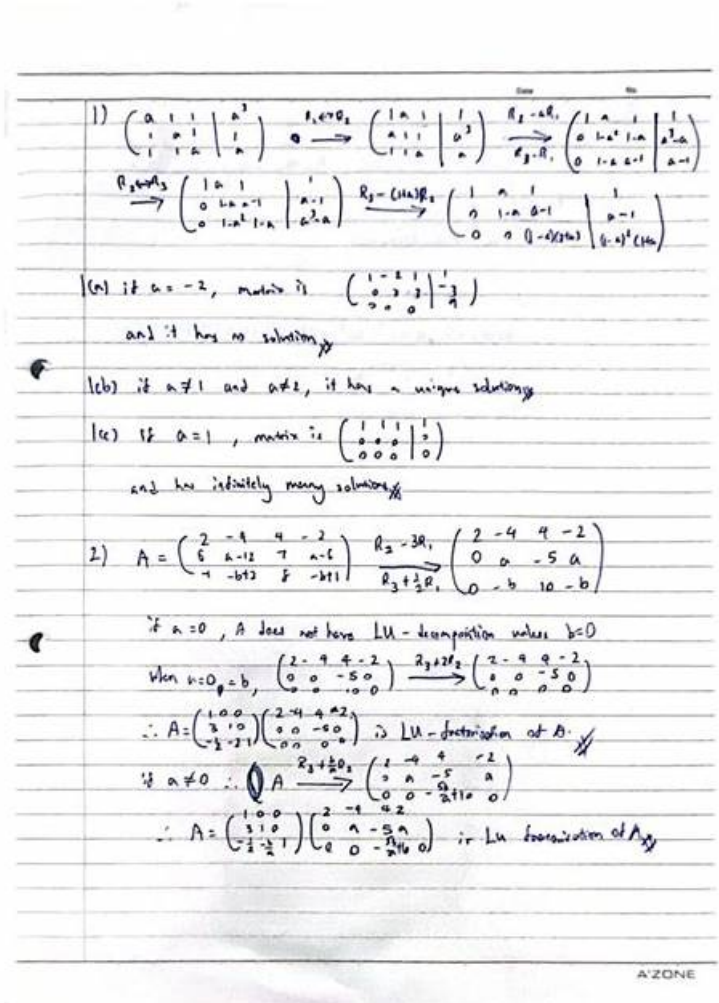 Date No.
1) ( a 1 1 | a³ ; 1 a 1 | 1 ; 1 1 a | a ) R₁↔R₂ ⟶ ( 1 a 1 | 1 ; a 1 1 | a³ ; 1 1 a | a ) R₂-aR₁ R₃-R₁ ⟶ ( 1 a 1 | 1 ; 0 1-a² 1-a | a³-a ; 0 1-a a-1 | a-1 )
R₂↔R₃ ⟶ ( 1 a 1 | 1 ; 0 1-a a-1 | a-1 ; 0 1-a² 1-a | a³-a ) R₃-(1+a)R₂ ⟶ ( 1 a 1 | 1 ; 0 1-a a-1 | a-1 ; 0 0 (1-a)(2+a) | (1-a)²(1+a) )
1(a) if a = -2, matrix is
and it has no solution
1(b) if a≠1 and a≠2, it has a unique solution
1(c) If a=1, matrix is ( 1 1 1 | 1 ; 0 0 0 | 0 ; 0 0 0 | 0 )
and has infinitely many solutions
2) A = ( 2 -4 4 -2 ; 6 a-12 7 a-6 ; -1 -b+2 8 -b+1 ) R₂-3R₁ R₃+½R₁ ⟶ ( 2 -4 4 -2 ; 0 a -5 a ; 0 -b 10 -b )
if a=0, A does not have LU-decomposition unless b=0
when a=0=b, ( 2 -4 4 -2 ; 0 0 -5 0 ; 0 0 10 0 ) R₃+2R₂ ⟶ ( 2 -4 4 -2 ; 0 0 -5 0 ; 0 0 0 0 )
∴ A = ( 1 0 0 ; 3 1 0 ; -½ -2 1 ) ( 2 -4 4 -2 ; 0 0 -5 0 ; 0 0 0 0 ) is LU-factorisation of A.
if a≠0 ∴ A ⟶ ( 2 -4 4 -2 ; 0 a -5 a ; 0 0 0 )
∴ A = ( 1 0 0 ; 3 1 0 ; -½ -b/a 1 ) is LU factorisation of A
A'ZONE